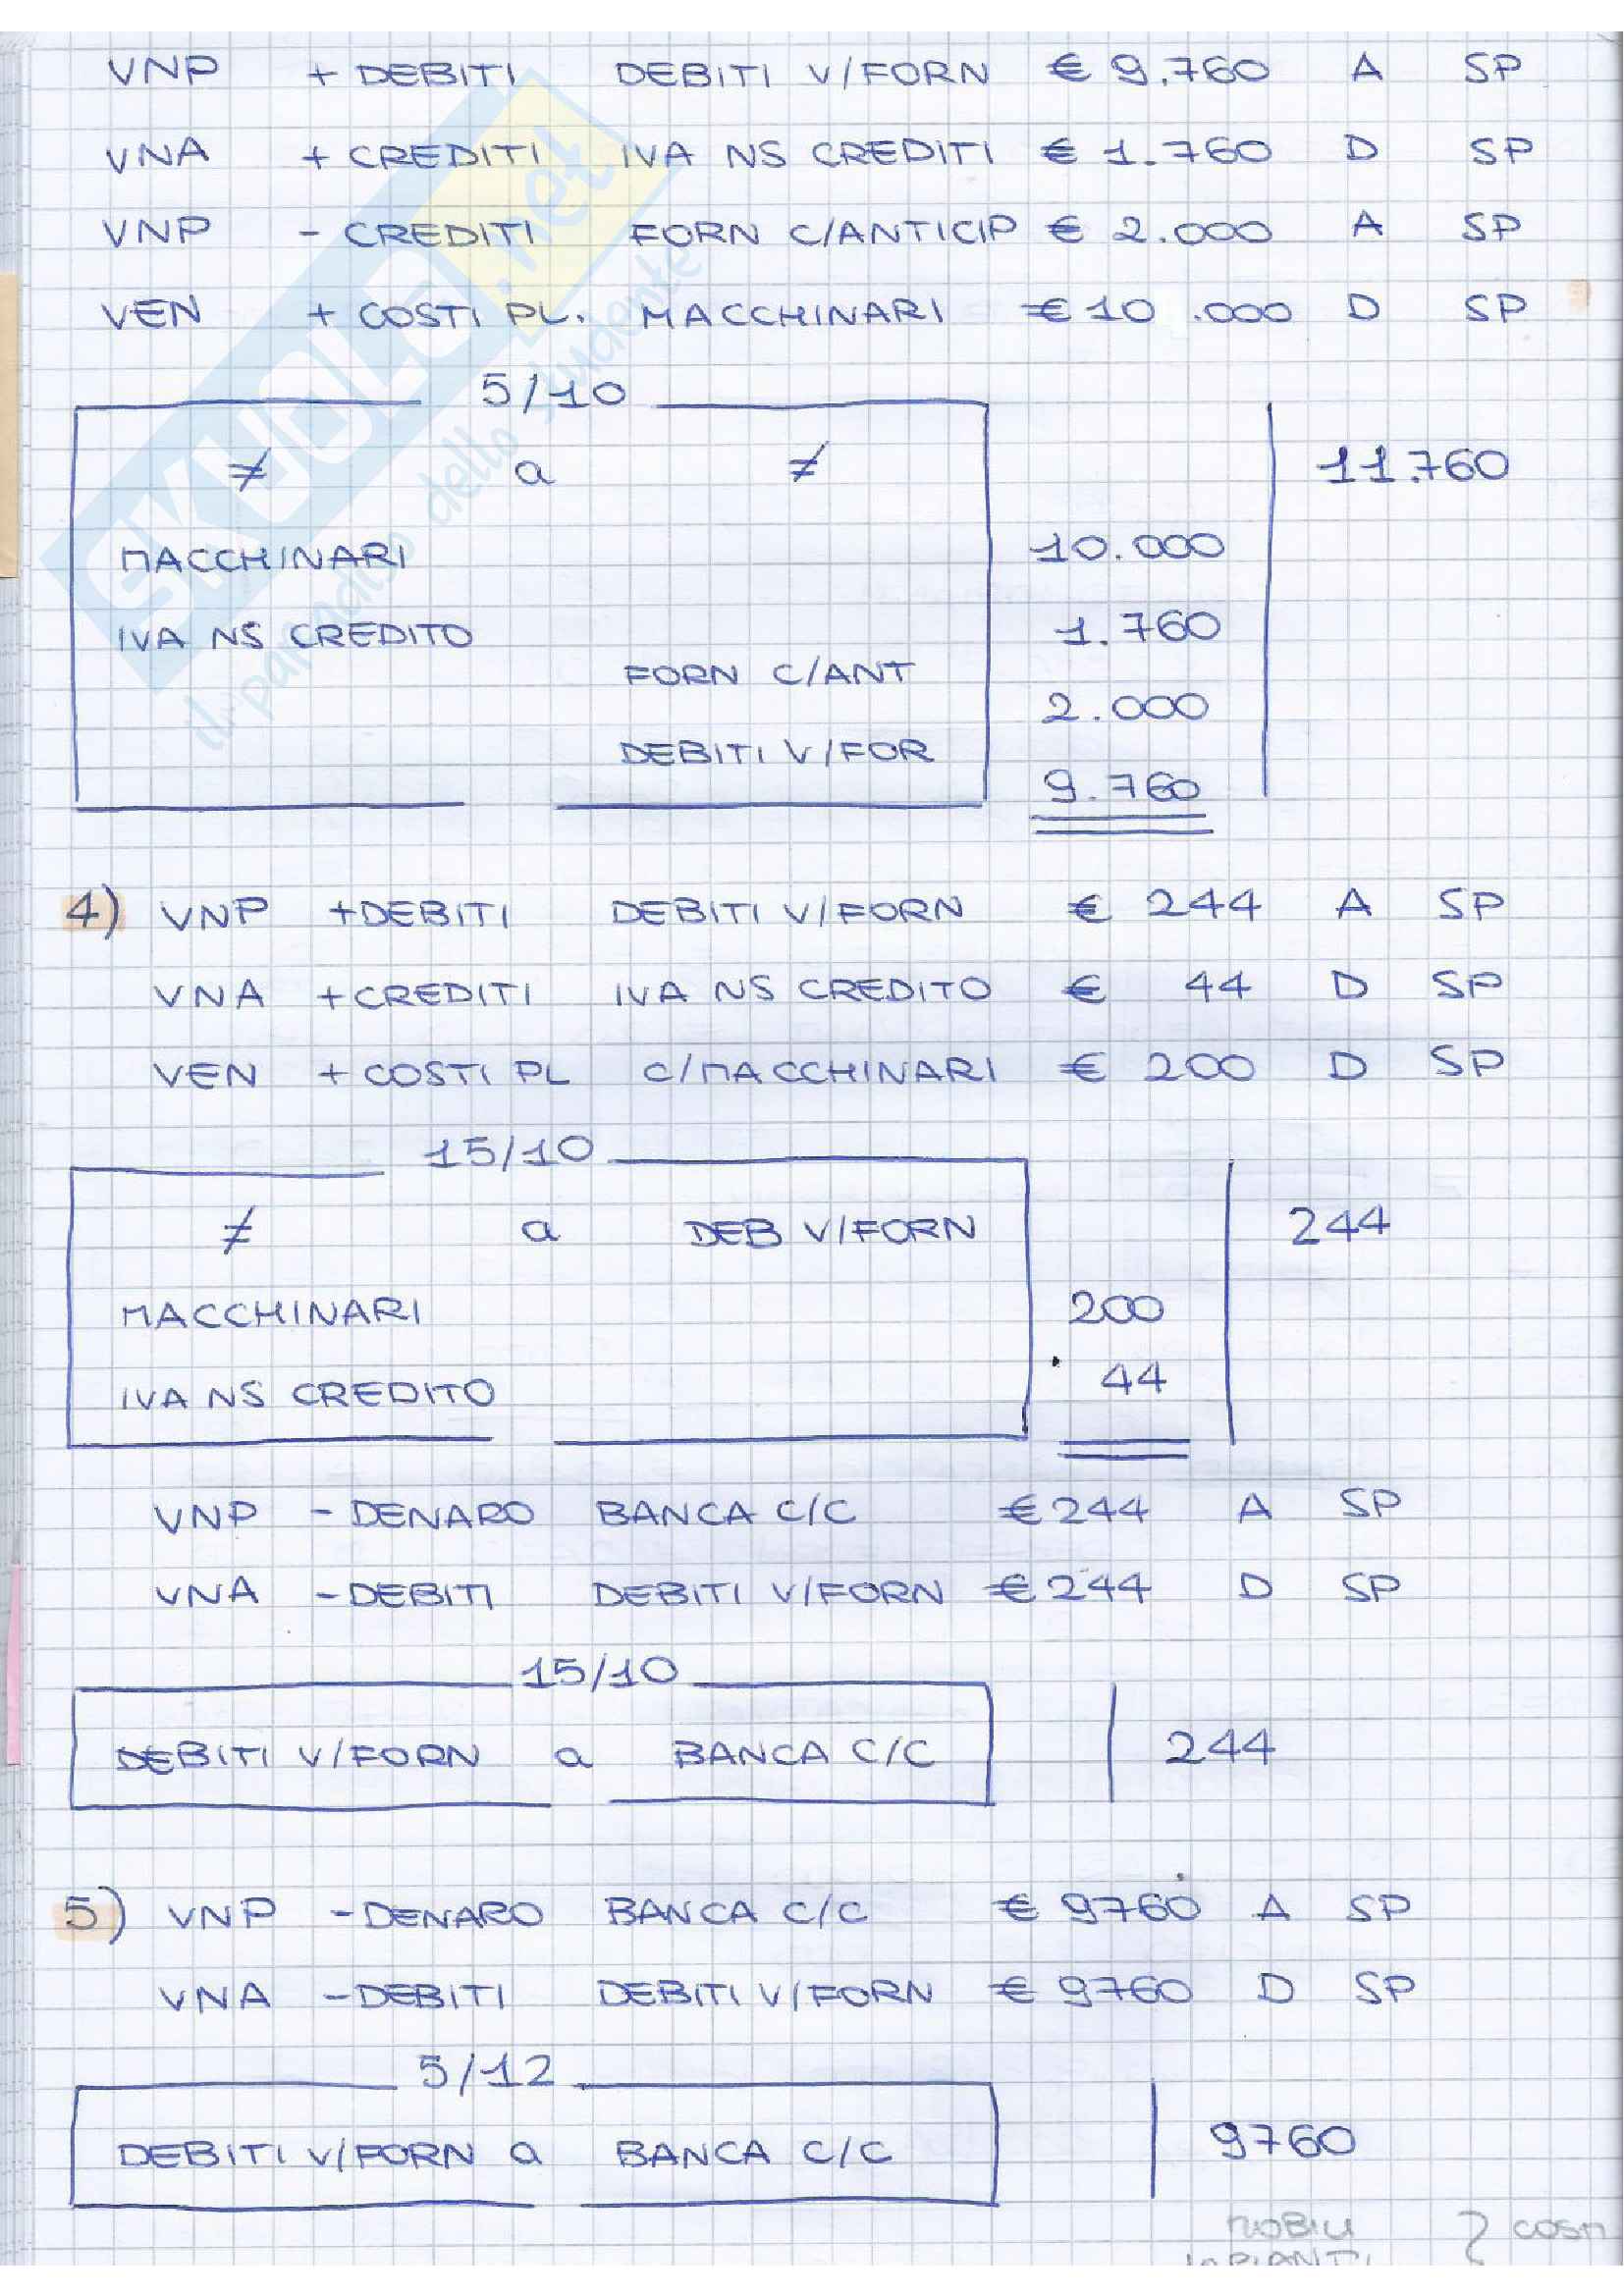 VNP + DEBITI DEBITI V/FORN € 9.760 A SP
VNA + CREDITI IVA NS CREDITI € 1.760 D SP
VNP - CREDITI FORN C/ANTICIP € 2.000 A SP
VEN + COSTI PL. MACCHINARI € 10.000 D SP
5/10
≠ a ≠ 11.760
MACCHINARI 10.000
IVA NS CREDITO 1.760
FORN C/ANT 2.000
DEBITI V/FOR 9.760
4) VNP +DEBITI DEBITI V/FORN € 244 A SP
VNA +CREDITI IVA NS CREDITO € 44 D SP
VEN + COSTI PL C/MACCHINARI € 200 D SP
15/10
≠ a DEB V/FORN 244
MACCHINARI 200
IVA NS CREDITO 44
VNP - DENARO BANCA C/C € 244 A SP
VNA - DEBITI DEBITI V/FORN € 244 D SP
15/10
DEBITI V/FORN a BANCA C/C 244
5) VNP - DENARO BANCA C/C € 9760 A SP
VNA - DEBITI DEBITI V/FORN € 9760 D SP
5/12
DEBITI V/FORN a BANCA C/C 9760
MOBILI
IMPIANTI
SKUOLA.net
il paradiso dello studente